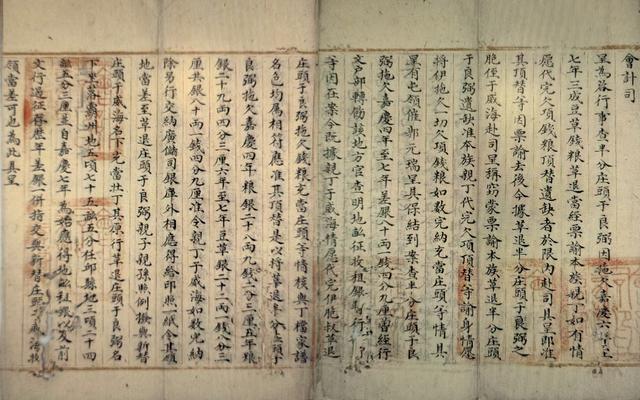 會計司
呈為咨行事查半分庄頭于良弼因拖欠嘉慶六年至
七年三成豆草錢粮草退當經票諭本族親丁如有情
愿代完欠項錢粮頂替遺缺者於限內赴司具呈即准
其頂替等因票諭去後今據草退半分庄頭于良弼之
胞侄于威海赴司呈稱窃蒙票諭本族草退半分庄頭
于良弼遺缺准本族親丁代完欠項頂替等諭身情愿
將伊拖欠一切欠項錢粮如數完納充當庄頭等情具
呈有屯領催郝元瑞呈具保結到案查半分庄頭于良
弼拖欠嘉慶四年至七年差銀八十兩一錢四分九厘當經行
文戶部轉飭該地方官查明地畝征收租銀
等因在案今既據親丁于威海情愿代完伊胞叔草退
庄頭于良弼拖欠錢粮充當庄頭等情核與丁檔家譜
名色均屬相符應准其頂替是以將草退半分庄頭于
良弼拖欠嘉慶四年粮銀二十八兩九錢二分二厘五年粮
銀二十九兩四分三厘六年至七年豆草銀二十二兩一錢八分三
厘共銀八十兩一錢四分九厘准令親丁于威海如數完納
除另行交納廣儲司銀庫外相應得給印照一紙令其頭
地當差至草退庄頭于良弼親子親孫照例撥與新替
庄頭于威海名下充當壯丁其原行草退庄頭于良弼名
下霸州地五項六十五畝五分任邱縣地三項二十四
畝五分三厘差自嘉慶七年為始應得地畝租銀以及前
文行過征得歷年差銀一併指交與新替庄頭于威海收
領當差可也為此具呈